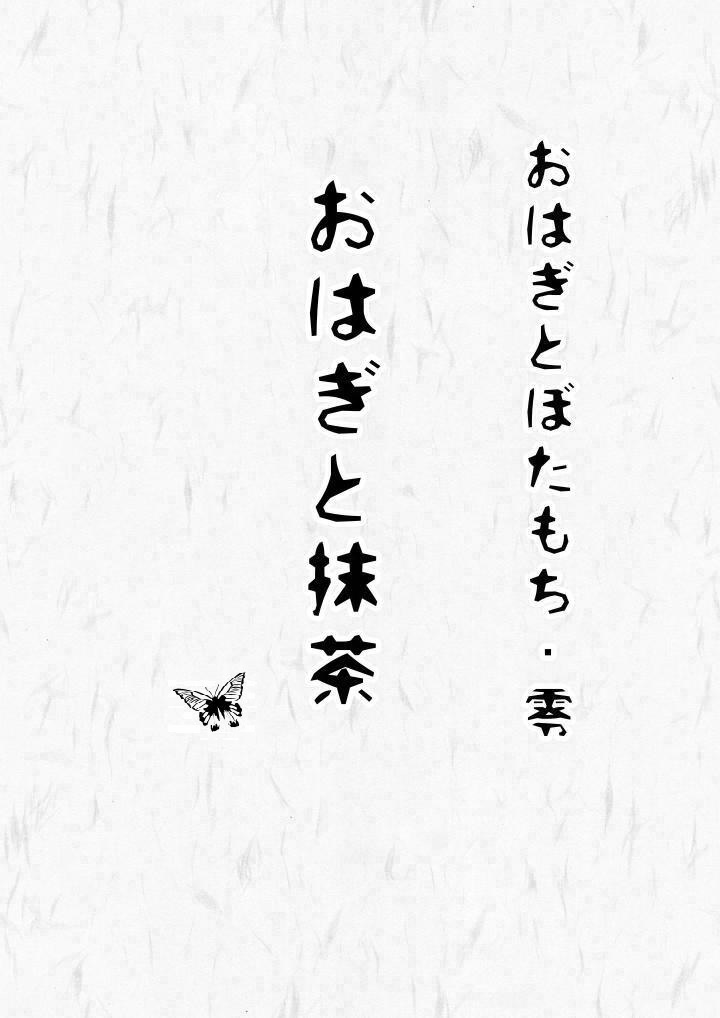 おはぎとぼたもち・零
おはぎと抹茶